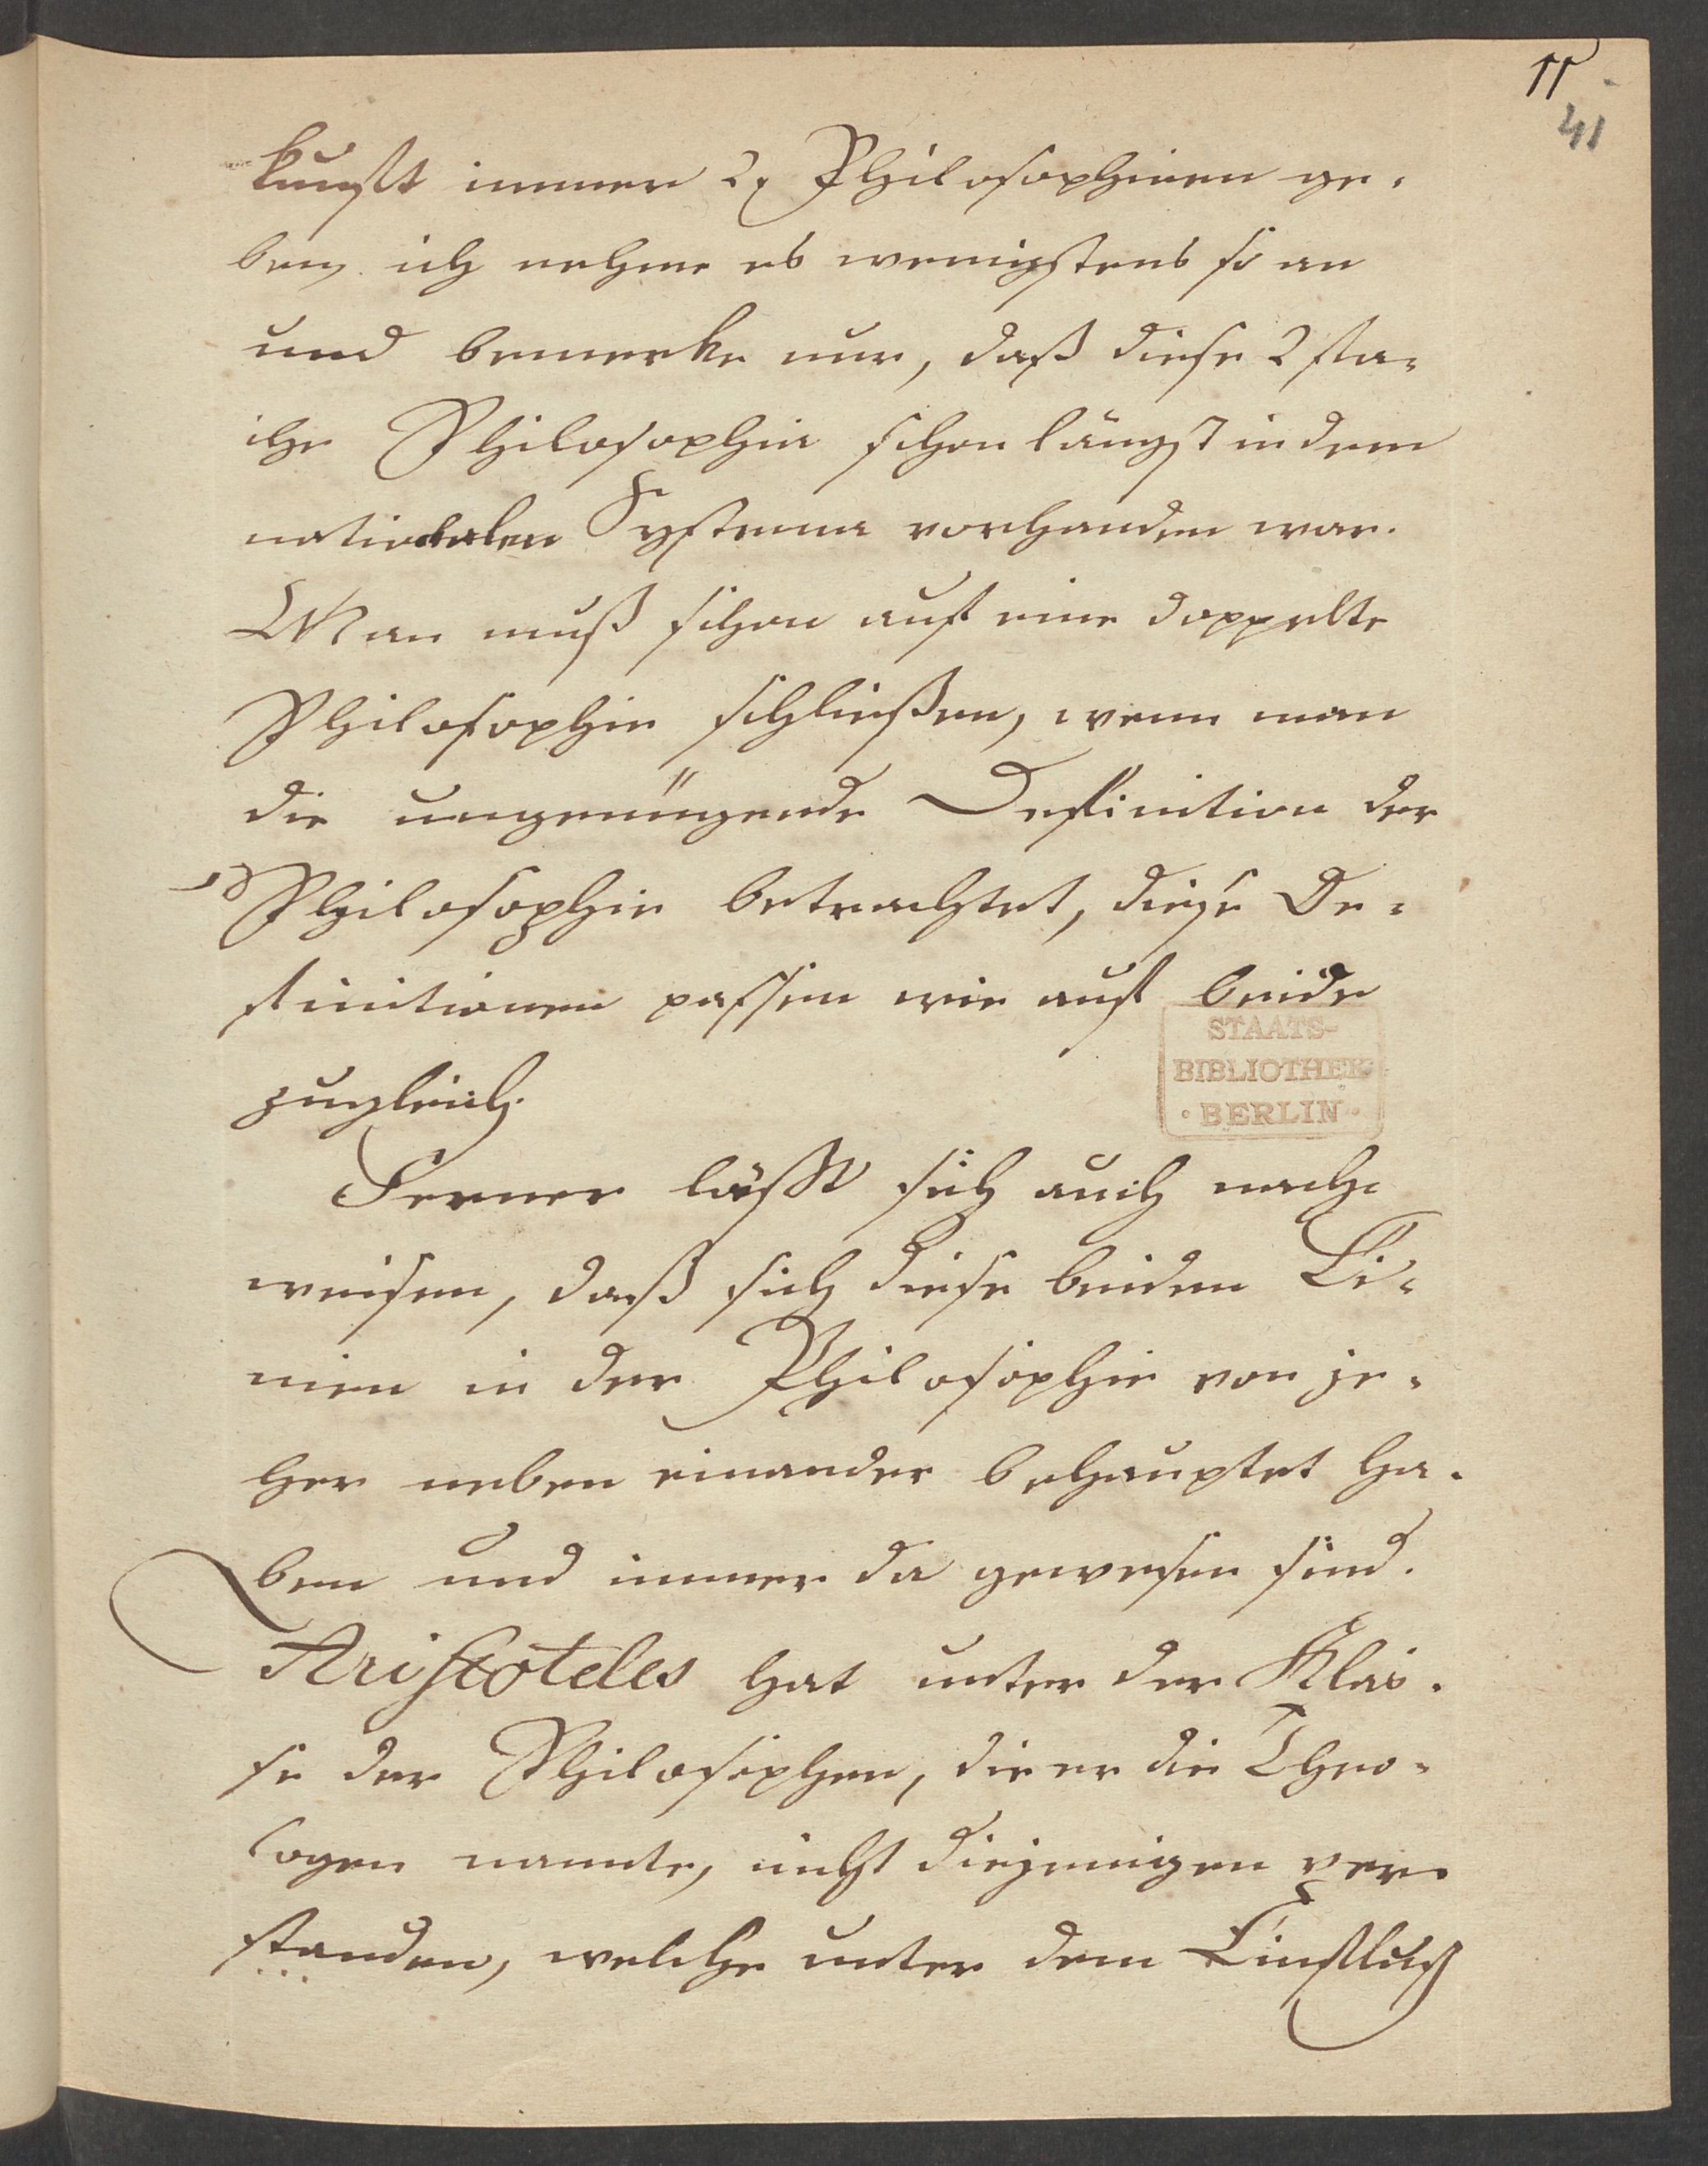 11
41
kunft immer 2 Philosophieen ge¬
ben ich nehme es wenigstens so an
und bemerke nur, daß diese 2 fla¬
che Philosophie schon längst in dem
nationalen Systeme vorhanden war.
Man muß schon auf eine doppelte
Philosophie schließen, wenn man
die ungenügende Definition der
Philosophie betrachtet, diese De¬
finitionen passen wie auf beide
zugleich.
STAATS-
BIBLIOTHEK
· BERLIN ·
Ferner läßt sich auch nach
weisen, daß sich diese beiden Li¬
nien in der Philosophie von je¬
her neben einander behauptet ha¬
ben und immer da gewesen sind.
Aristoteles hat unter der Klas¬
se der Philosophen, die er die Theo¬
logen nannte, nicht diejenigen ver¬
standen, welche unter dem Einfluß